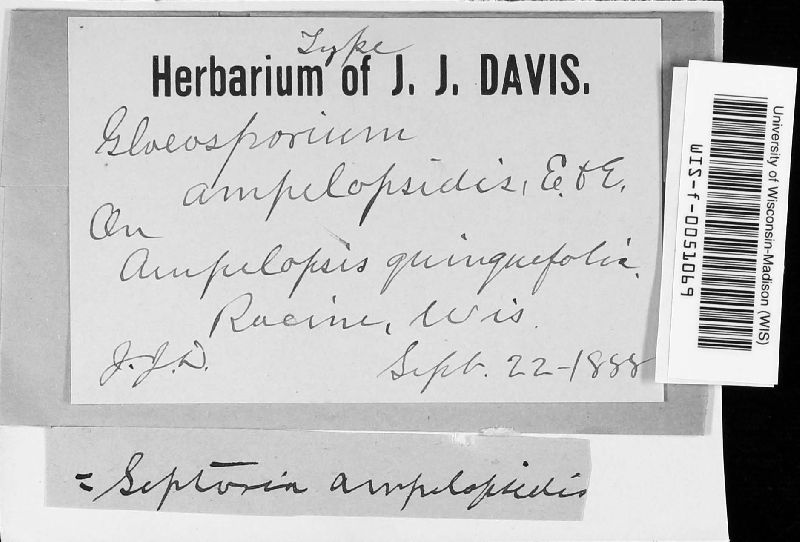 Type
Herbarium of J. J. DAVIS.
Gloeosporium
ampelopsidis, E. & E.
On
Ampelopsis quinquefolia.
Racine, Wis.
J.J.D. Sept. 22-1888
= Septoria ampelopsidis
University of Wisconsin-Madison (WIS)
WIS-f-0051069